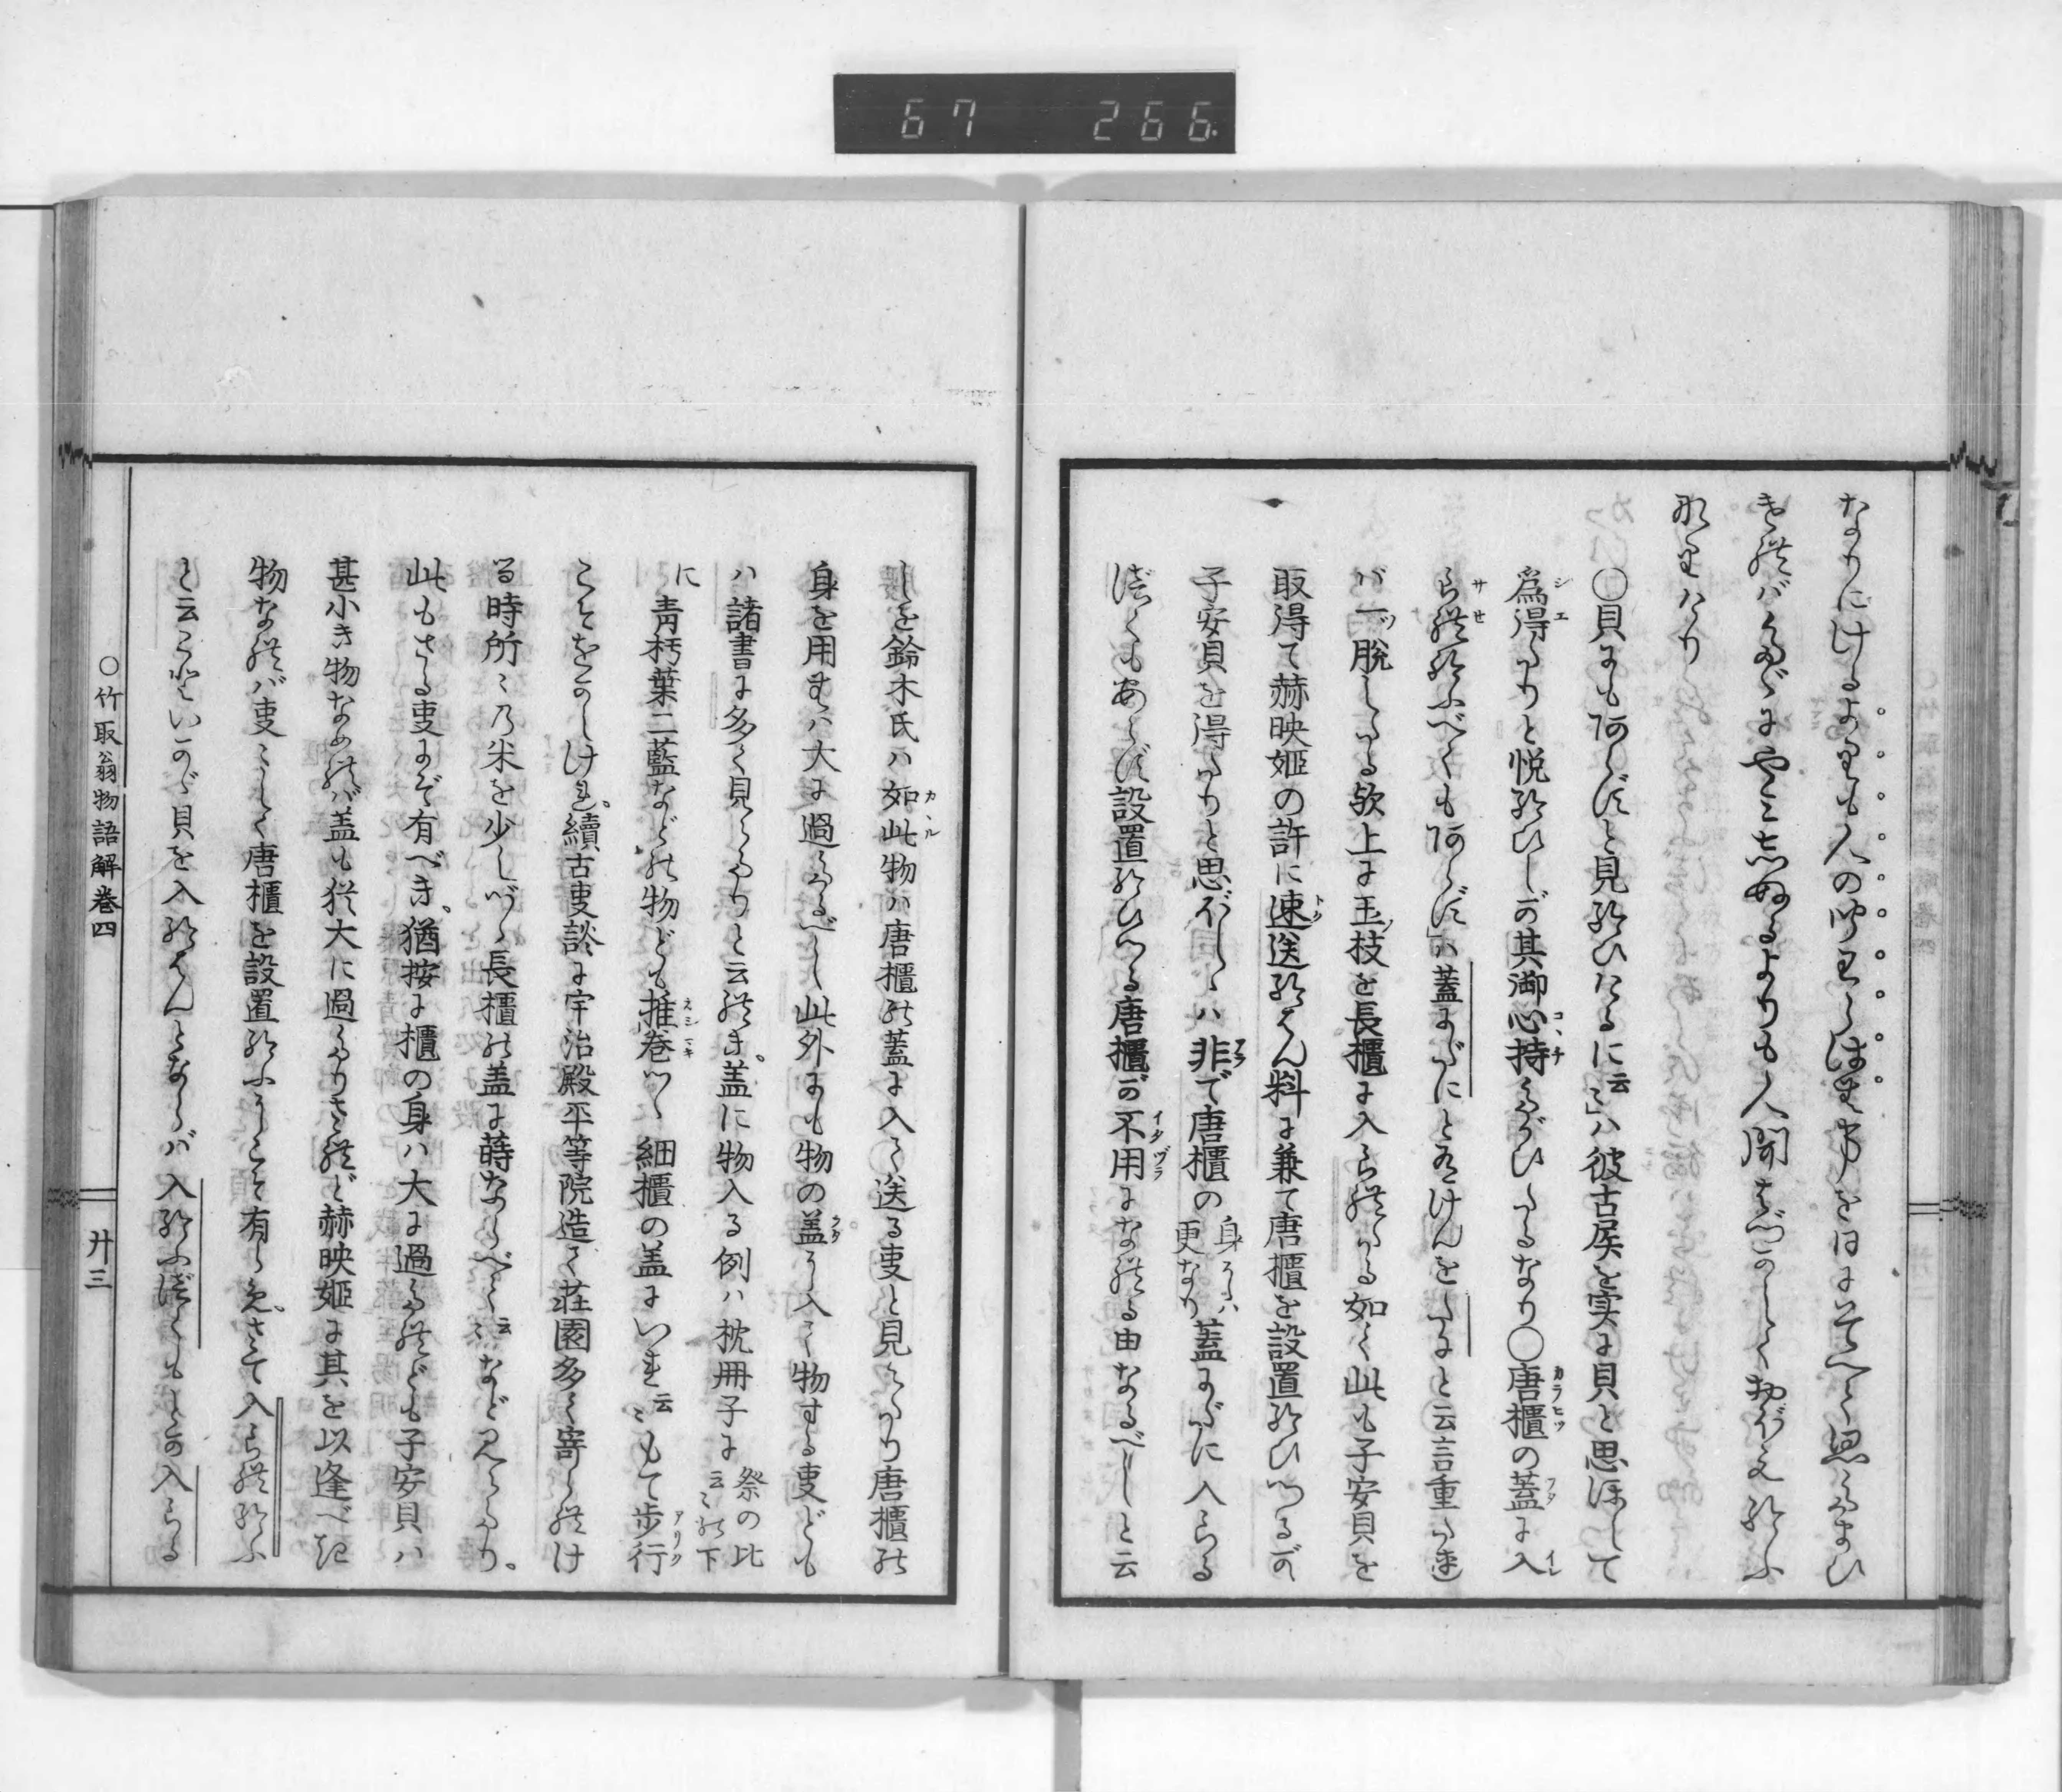 67 266
なりにけるよりも人の聞わらはむ事を日にそへて思ひたまひ
ければたゞにやみ志ぬるよりも人聞はづかしくおぼえ給ふ
なりけり
○貝にも阿らずと見給ひけるに云々ハ彼古屎を実に貝と思ほして
爲得たりと悦給ひしが其御心持たがひたるなり○唐櫃の蓋に入
られ給ふべくも阿らずハ蓋にだにと有けんをたにと云言重たれ
バ一ツ脱したる歟上に玉枝を長櫃に入られたる如く此も子安貝を
取得て赫映姫の許に速送給はん料に兼て唐櫃を設置給ひつるが
子安貝を得たりと思ぼしゝハ非で唐櫃の身にハ更なり蓋にだに入らる
べくもあらず設置給ひつる唐櫃が不用になれる由なるべしと云
しを鈴木氏ハ如此物ハ唐櫃の蓋に入て送る事と見えたり唐櫃の
身を用むハ大に過たるべし此外にも物の盖に入て物する事ども
ハ諸書に多く見えたりと云れき盖に物入る例ハ枕冊子に祭の比云々の下
に青朽葉二藍などの物ども推巻つゝ細櫃の盖にいれ云々もて歩行
ことをかしけれ續古事談に宇治殿平等院造て荘園多く寄られけ
る時所々乃米を少しづゝ長櫃の盖に蒔ならべて云々など見えたり
此もさる事にぞ有べき猶按に櫃の身ハ大に過たれども子安貝ハ
甚小き物なめれバ盖も猶大に過たりされど赫映姫に其を以逢べき
物なれバ事々しく唐櫃を設置給ふにこそ有らめさて入られ給ふ
と云こといかゞ貝を入給はんとならバ入給ふべくもとか入らる
○竹取翁物語解巻四
廿三